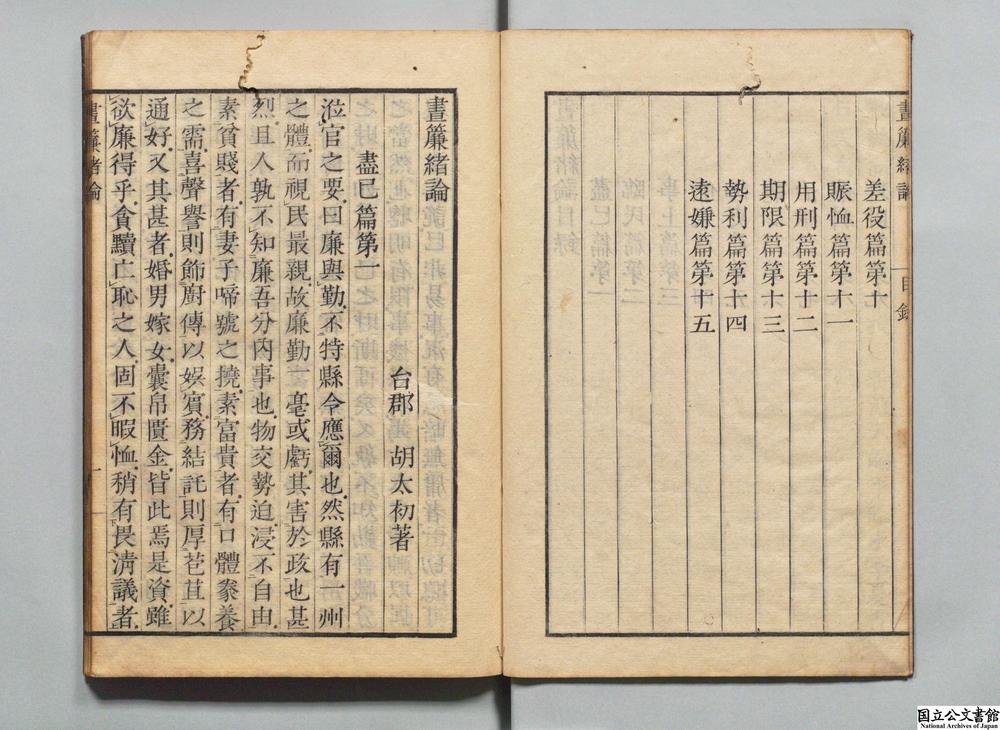 差役篇第十
賑恤篇第十一
用刑篇第十二
期限篇第十三
勢利篇第十四
遠嫌篇第十五
晝簾緒論
目錄
晝簾緒論
台郡 胡太初著
盡已篇第一
涖官之要曰廉與勤不特縣令應爾也然縣有一州
之體而視民最親故廉勤一毫或虧其害於政也甚
烈且人孰不知廉吾分內事也物交勢迫浸不自由
素貧賤者有妻子啼號之撓素富貴者有口體豢養
之需喜聲譽則飾廚傳以娛賓務結託則厚苞苴以
通好又其甚者婚男嫁女囊帛匱金皆此焉是資雖
欲廉得乎貪黷亡恥之人固不暇恤稍有畏淸議者
晝簾緒論
一
国立公文書館
National Archives of Japan